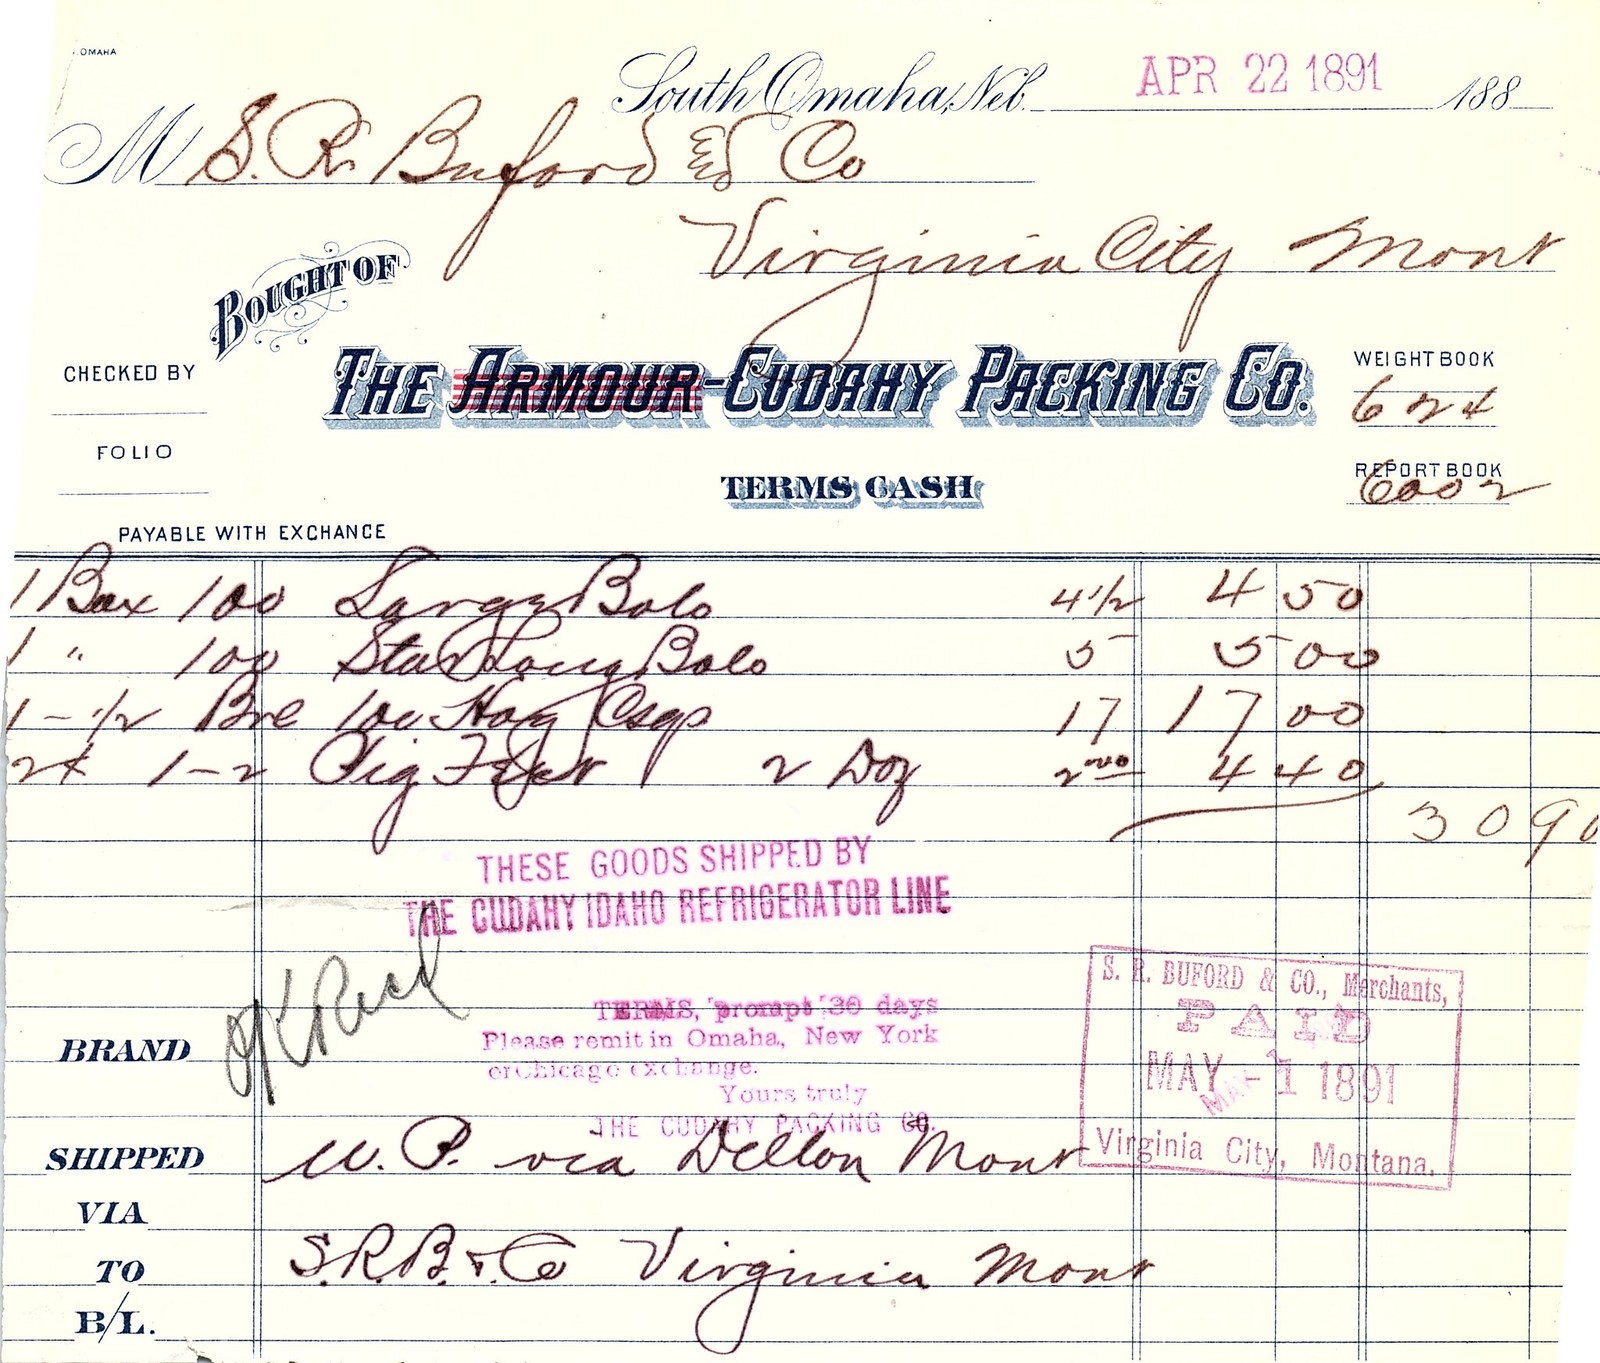 OMAHA
South Omaha, Neb. APR 22 1891 188
M S. R. Buford & Co
Virginia City Mont
BOUGHT OF
THE ARMOUR-CUDAHY PACKING CO.
CHECKED BY
FOLIO
WEIGHT BOOK
624
REPORT BOOK
6002
TERMS CASH
PAYABLE WITH EXCHANGE
1 Box 100 Large Bolo 4 1/2 4 50
1 " 100 Star Long Bolo 5 5 00
1 - 1/2 Brl 100 Hog Csgs 17 17 00
24 1-2 Pig Feet 2 Doz 2 20 4 40
30 90
THESE GOODS SHIPPED BY
THE CUDAHY IDAHO REFRIGERATOR LINE
OK Recd
TERMS, prompt 30 days
Please remit in Omaha, New York
or Chicago exchange.
Yours truly
THE CUDAHY PACKING CO.
S. R. BUFORD & CO., Merchants,
PAID
MAY - 1 1891
Virginia City, Montana.
BRAND
SHIPPED U. P. via Dillon Mont
VIA
TO S.R.B. & Co Virginia Mont
B/L.